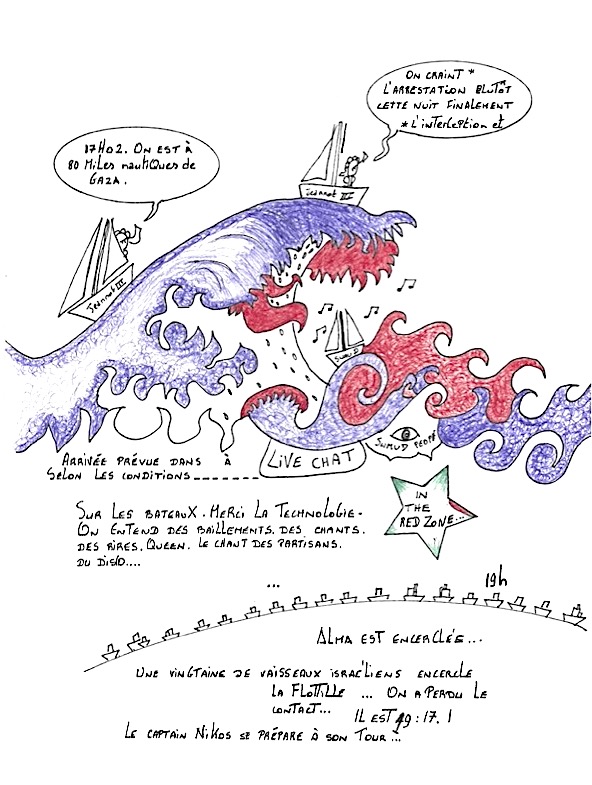 ON CRAINT *
L'ARRESTATION PLUTÔT
CETTE NUIT FINALEMENT
* L'INTERCEPTION et
17H02. ON EST À
80 MILES NAUTIQUES de
GAZA.
Jeannot III
Jeannot III
SUMUD
SUMUD PEOPLE
LIVE CHAT
ARRIVÉE PRÉVUE DANS À
SELON LES CONDITIONS_______
IN
THE
RED ZONE...
SUR LES BATEAUX. MERCI LA TECHNOLOGIE-
ON ENTEND DES BAILLEMENTS. DES CHANTS.
DES RIRES. QUEEN. LE CHANT DES PARTISANS.
DU DISCO....
...
19h
ALMA EST ENCERCLÉE...
UNE VINGTAINE DE VAISSEAUX ISRAÉLIENS ENCERCLE
LA FLOTILLE ... ON A PERDU LE
CONTACT...
IL EST 19:17. !
LE CAPTAIN NIKOS SE PRÉPARE À SON TOUR...